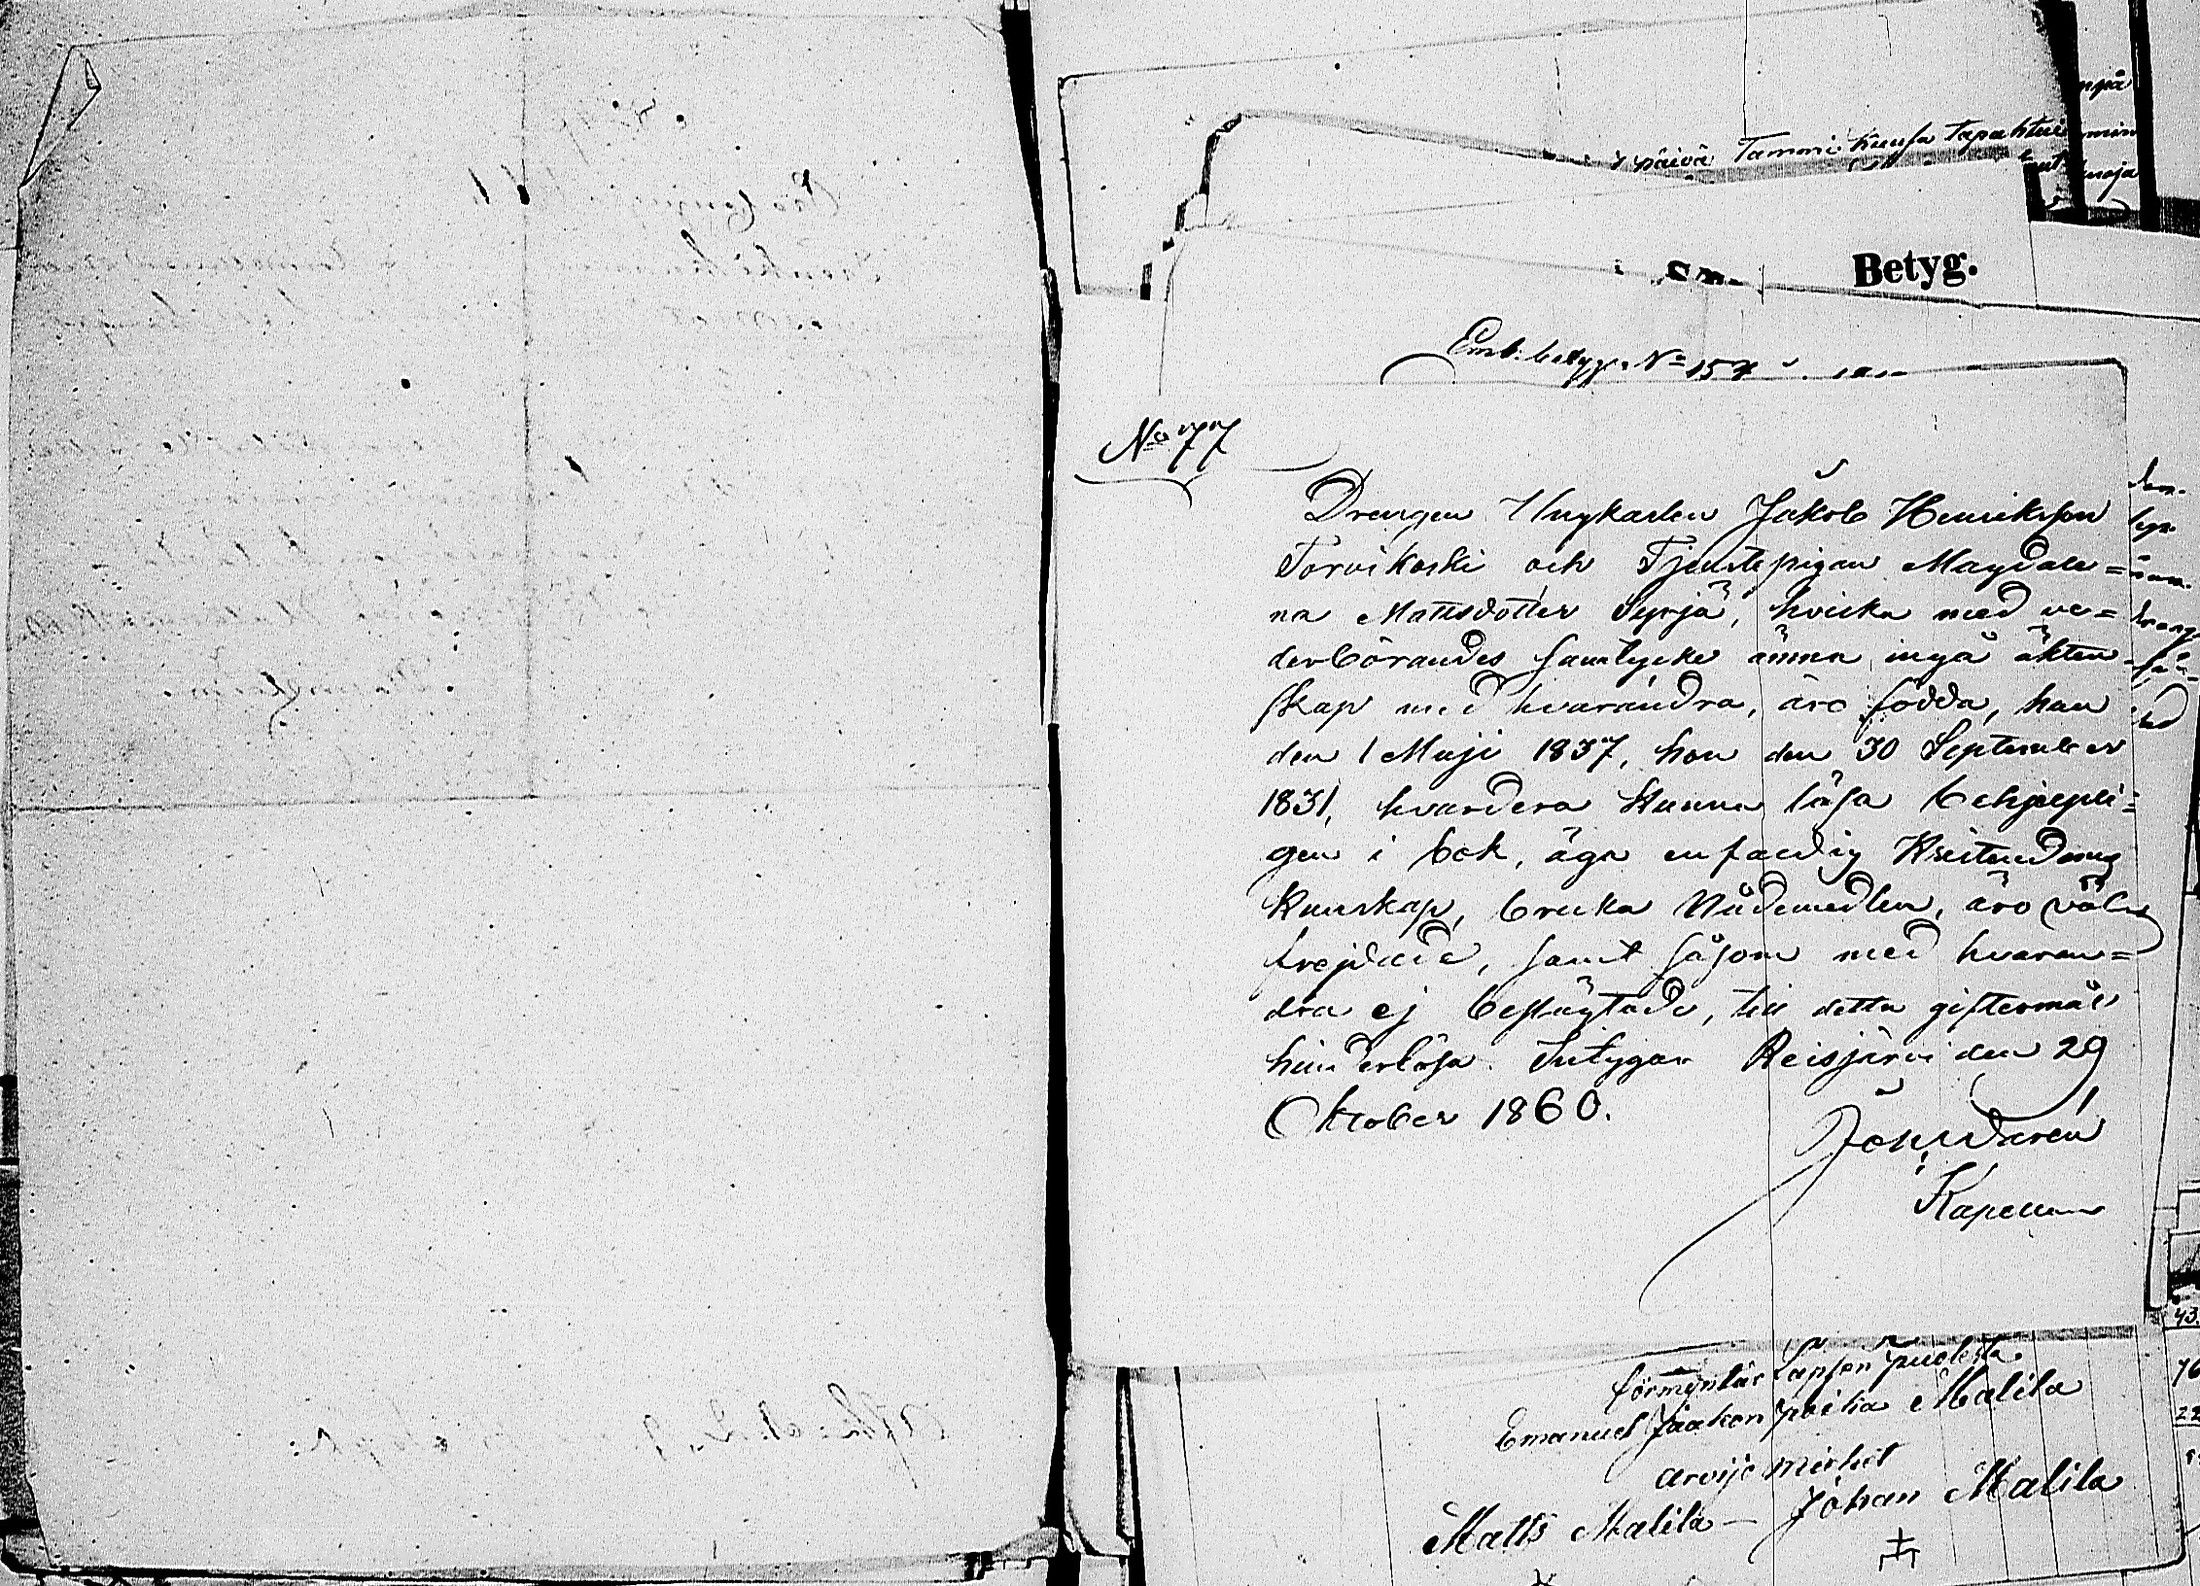 päivä Tammi Kuusa Tapahtui
Betyg.
Emb. betyg. No 157
No 77
Drengen Ungkarlen Jakob Henriksson
Torvikoski och Tjenstepigan Magdale=
na Mattsdotter Syrjä, hvilka med ve=
derbörandes samtycke ämna ingå äkten
skap med hvarandra, äro födda, han
den 1 Maji 1837, hon den 30 September
1831, hvardera kunna läsa behjelpli=
gen i bok, äga enfaldig Kristendoms
kunskap, bruka Nådemedlen, äro väl
frejdade, samt såsom med hvaran=
dra ej beslägtade, till detta giftermål
hinderlösa. Intygar Reisjärvi den 29
Oktober 1860.
Kapellan
förmyntär Lapsen puolesta
Emanuel Jaakon poika Malila
arvijo miehet
Matts Malila — Johan Malila